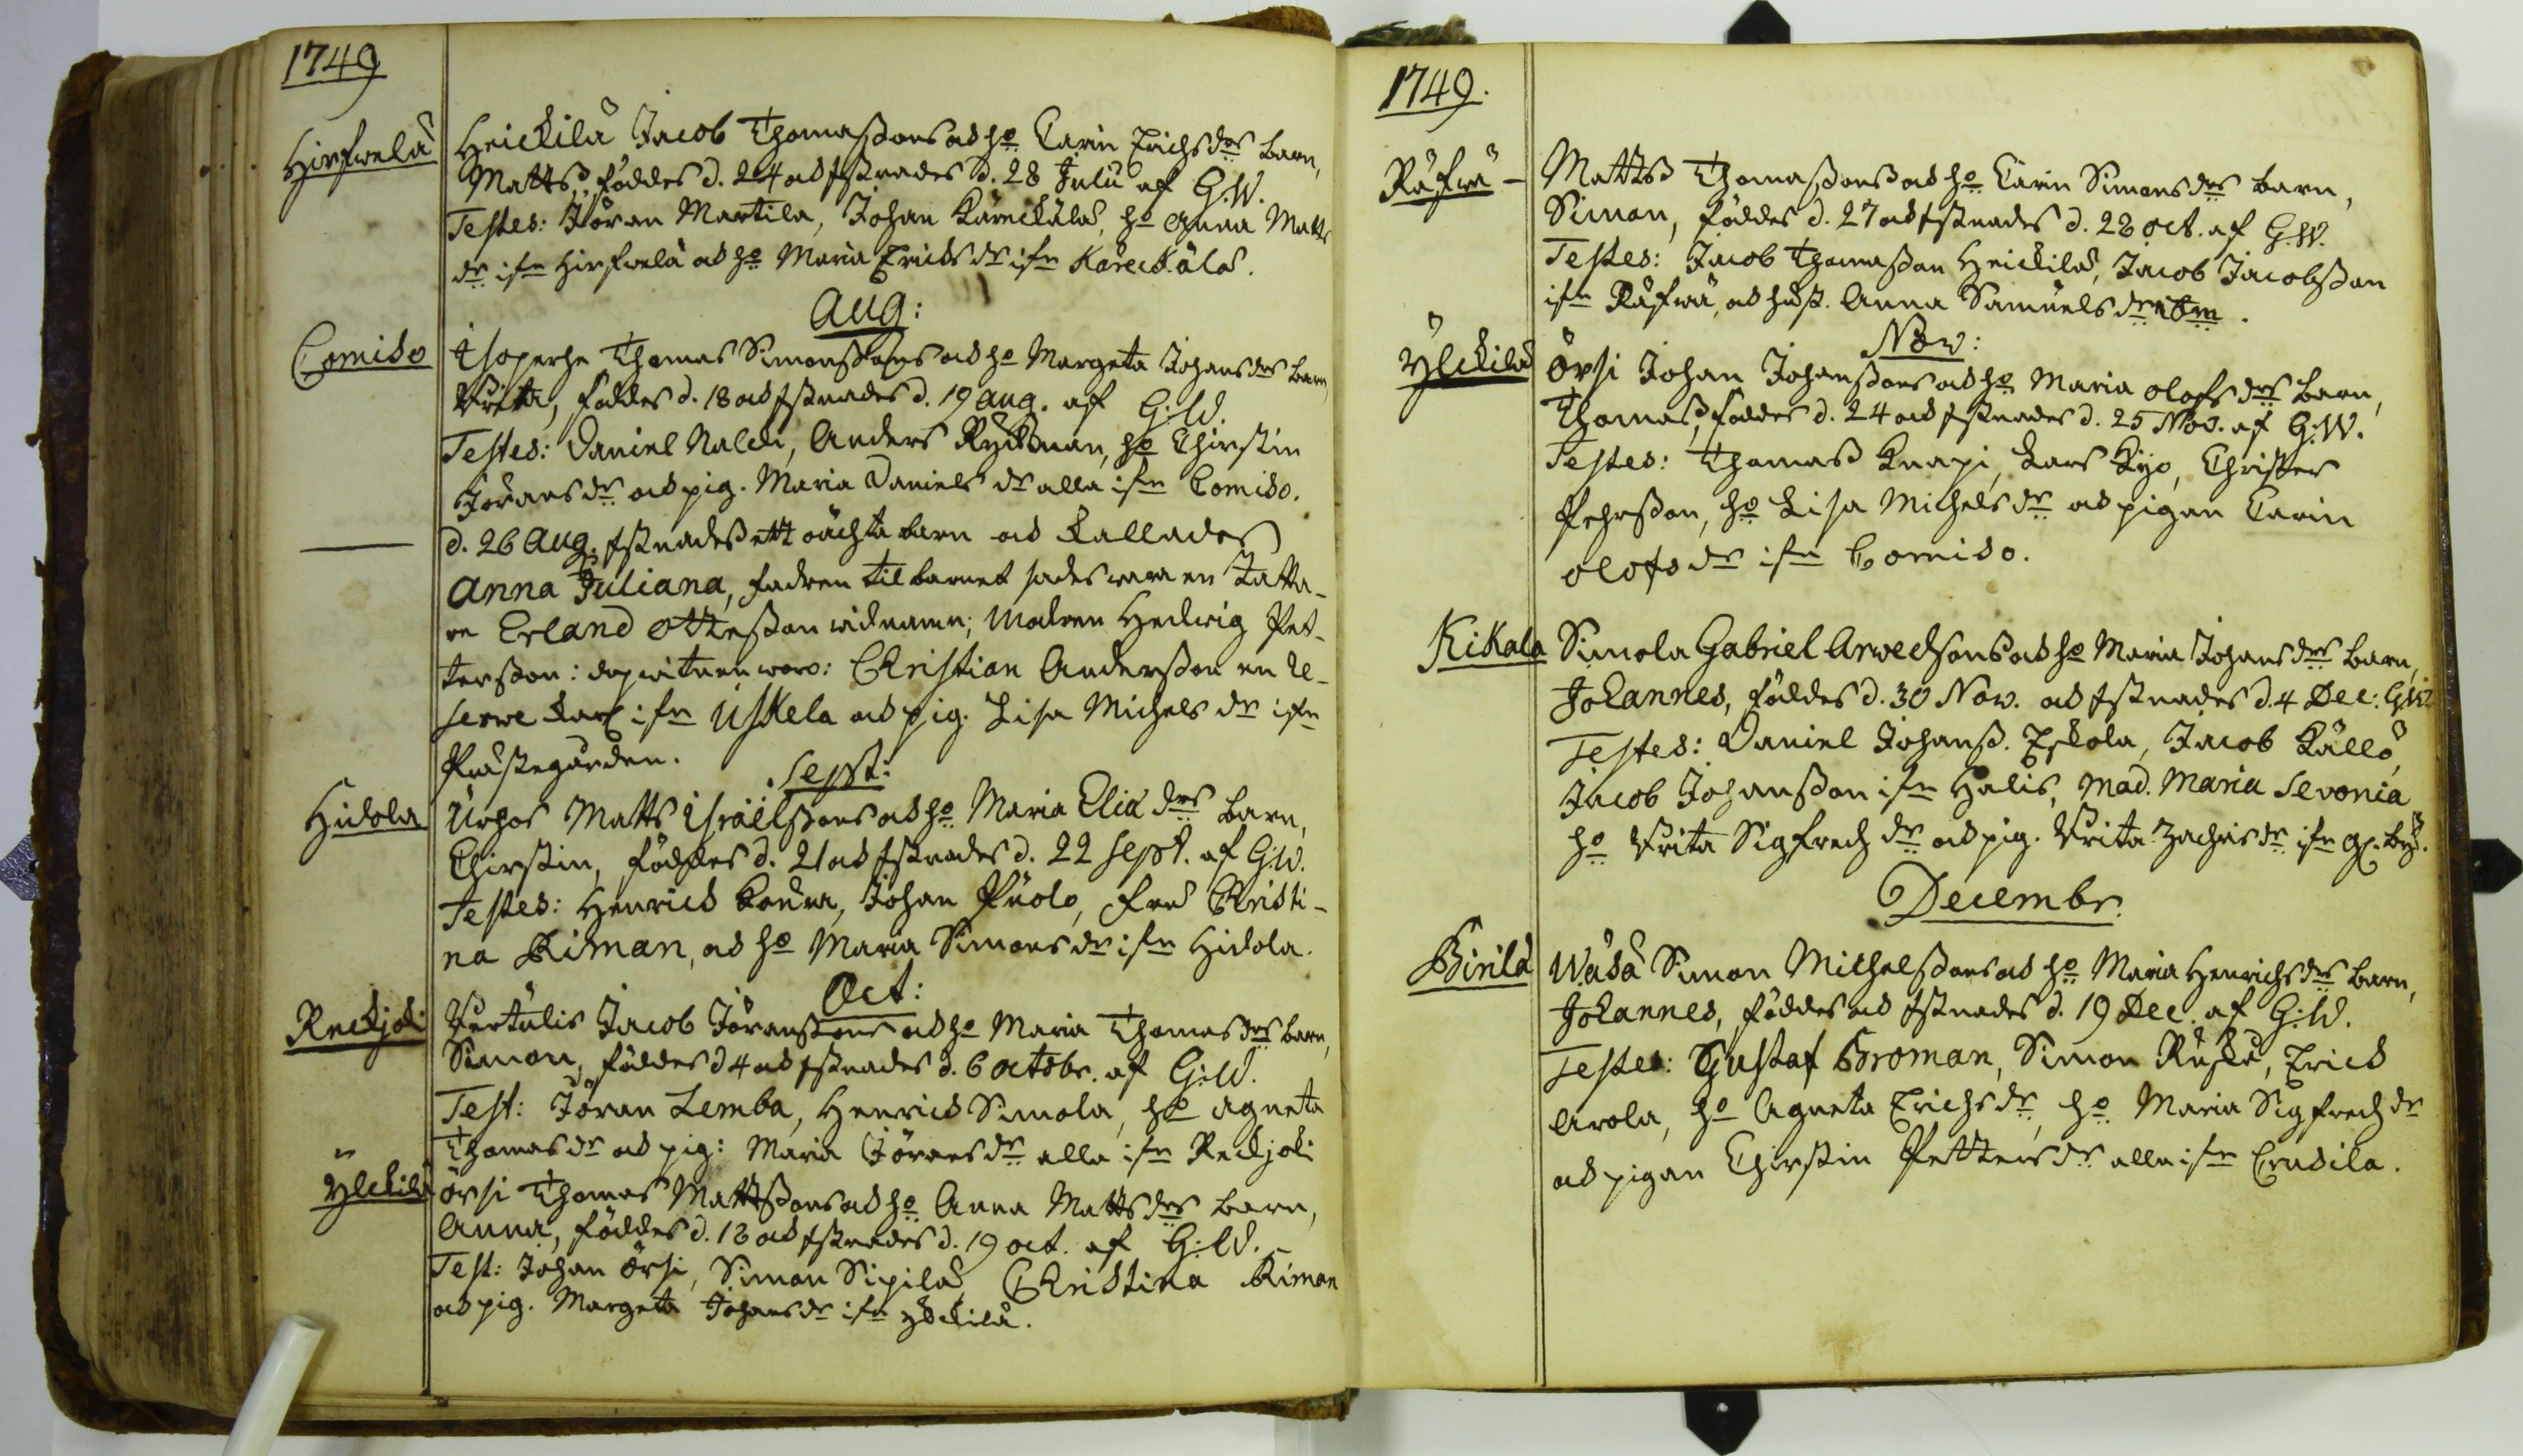 1749
Hirfwelä Heickilä Jacob Thomaßons och ho Carin Erichsdrs barn,
Matts, föddes d. 24 och kstnades d. 28 Julii af G.W.
Testes: Jöran Martila, Johan Kärickälä, ho Anna Matts
dr ifrn Hirfwelä och ho Maria Erichsdr ifrn Kärickälä.
Aug:
Comiso Isoperhe Thomas Simonßons och ho Margeta Johansdrs barn
Brita, föddes d. 18 och kstnades d. 19 Aug. af G:W.
Testes: Daniel Nalcki, Anders Ryckman, ho Chirstin
Jöransdr och pig. Maria Danielsdr alla ifrn Comiso.
d. 26 Aug. kstnades ett oächta barn och kallades
Anna Juliana, fadren til barnet sades wara en Tatta-
re Erland Otteßon widnamn; Modren Hedwig Pet-
terßon: dopwitnen woro: Christian Anderßon en re-
serwe karl ifrn Uskela och pig. Lisa Michelsdr ifrn
Prästegården.
Sept:
Hidola Urhos Matts Israelßons och ho Maria Eliædrs barn,
Chirstin, föddes d. 21 och kstnades d. 22 Sept. af G:W.
Testes: Henrich Kouva, Johan Puolo, fru Christi-
na Kiman, och ho Maria Simonsdr ifrn Hidola.
Oct:
Reckjoki Pertulis Jacob Jöranßons och ho Maria Thomasdrs barn,
Simon, föddes d 4 och kstnades d. 6 octobr. af G:W.
Test: Jöran Lemba, Henrich Simola, ho Agneta
Thomasdr och pig: Maria Jöransdr alla ifrn Reckjoki
Ylckilä Örsi Thomas Mattßons och ho Anna Mattsdrs barn,
Anna, föddes d. 18 och kstnades d. 19 oct. af G:W.
Test: Johan Örsi, Simon Sipilä, Christina Kiman
och pig. Margeta Johansdr ifrn Ylckilä.
1749.
Räfwä - Matts Thomaßons och ho Carin Simonsdrs barn,
Simon, föddes d. 27 och kstnades d. 28 oct. af G.W.
Testes: Jacob Thomaßon Heickilä, Jacob Jacobßon
ifrn Räfwä, och hust. Anna Samuelsdr ibm.
Nov:
Ylckilä Örsi Johan Johanßons och ho Maria Olofsdrs barn,
Thomas, föddes d. 24 och kstnades d. 25 Nov. af G:W.
Testes: Thomas Knapi, Lars Kyo, Christer
Pehrßon, ho Lisa Michelsdr och pigan Carin
Olofsdr ifrn Comiso.
Kikala Simola Gabriel Arwedsons och ho Maria Johansdrs barn,
Johannes, föddes d. 30 Nov. och kstnades d. 4 Dec: G:W.
Testes: Daniel Johanß. Eskola, Jacob Källö,
Jacob Johanßon ifrn Halis, Mad. Maria Sevonia
ho Brita Sigfredsdr och pig. Brita Zachrisdr ifrn
Decembr.
Pirilä Wäsä Simon Michelßons och ho Maria Henrichsdrs barn,
Johannes, föddes och kstnades d. 19 Dec. af G:W.
Testes: Gustaf Broman, Simon Ruska, Erich
Arola, ho Agneta Erichsdr, ho Maria Sigfredsdr
och pigan Chirstin Pettersdr alla ifrn